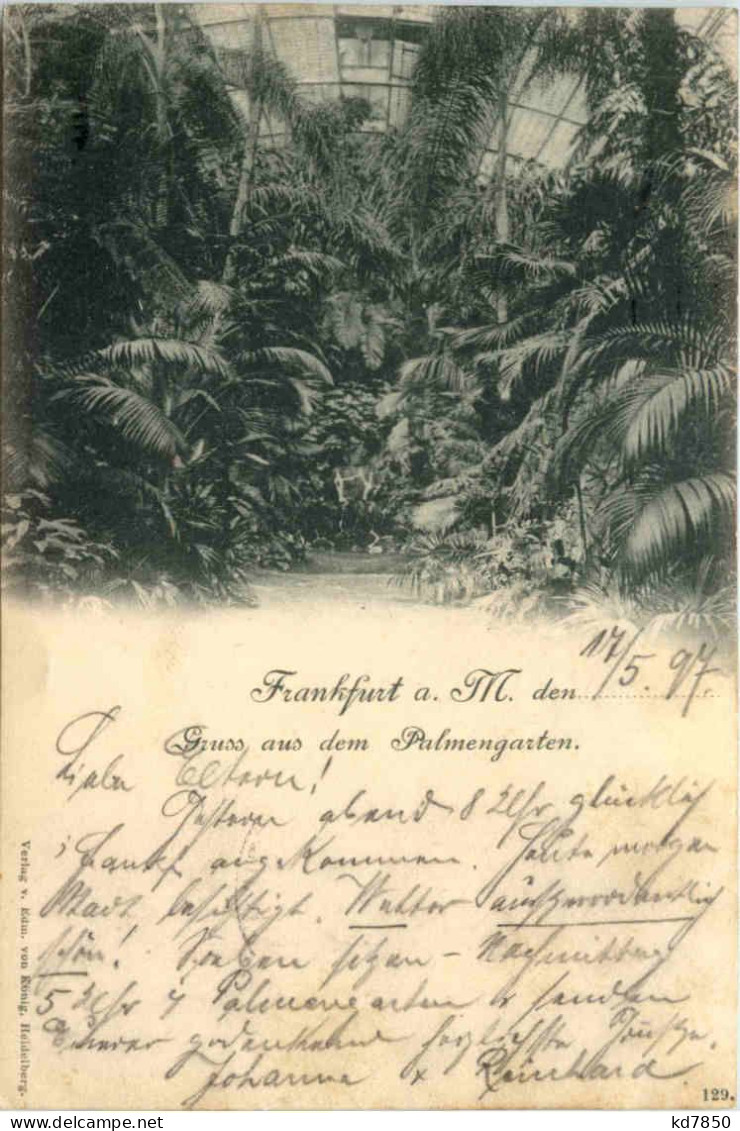 Frankfurt a. M. den 17/5. 97.
Gruss aus dem Palmengarten.
Liebe Eltern!
Gestern abend 8 Uhr glücklich
i/ Frankf. angekommen. Heute morgen
Stadt besichtigt. Wetter außerordentlich
schön! Soeben sitzen – Nachmittag
5 Uhr i/ Palmengarten & senden
Euerer gedenkend herzlichste Grüße.
Johanna & Reinhard.
Verlag v. Edm. von König, Heidelberg.
129.
kd7850